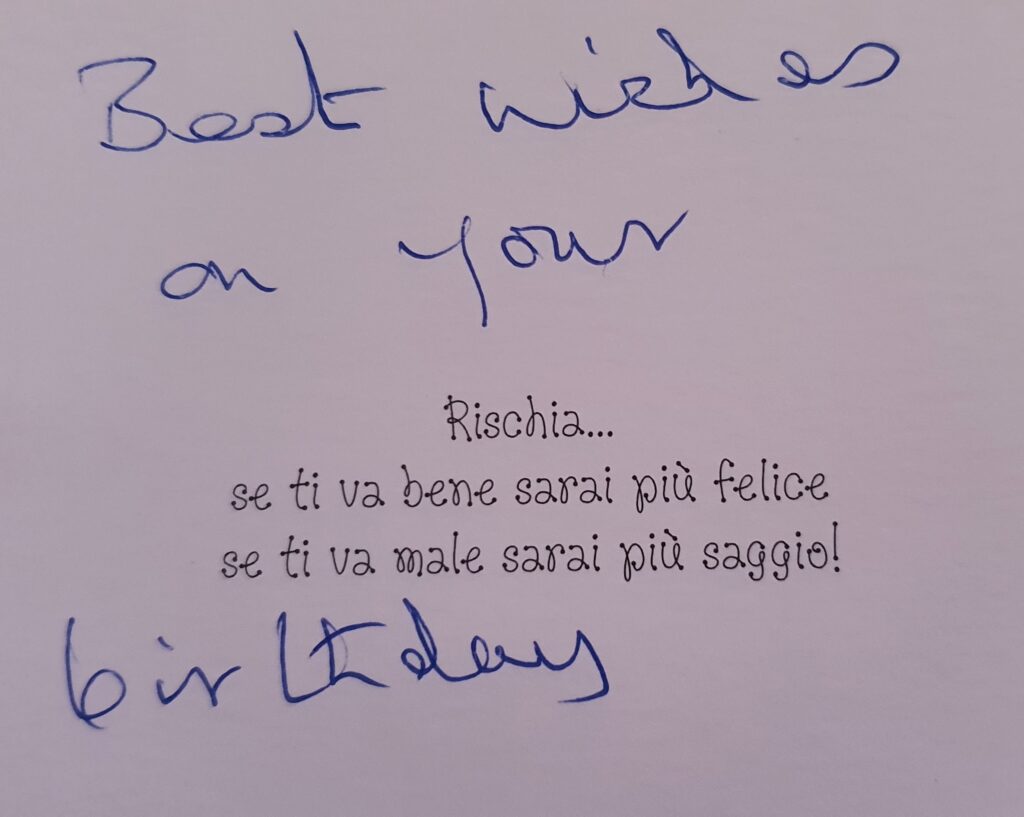 Best wishes
on your
Rischia...
se ti va bene sarai più felice
se ti va male sarai più saggio!
birthday